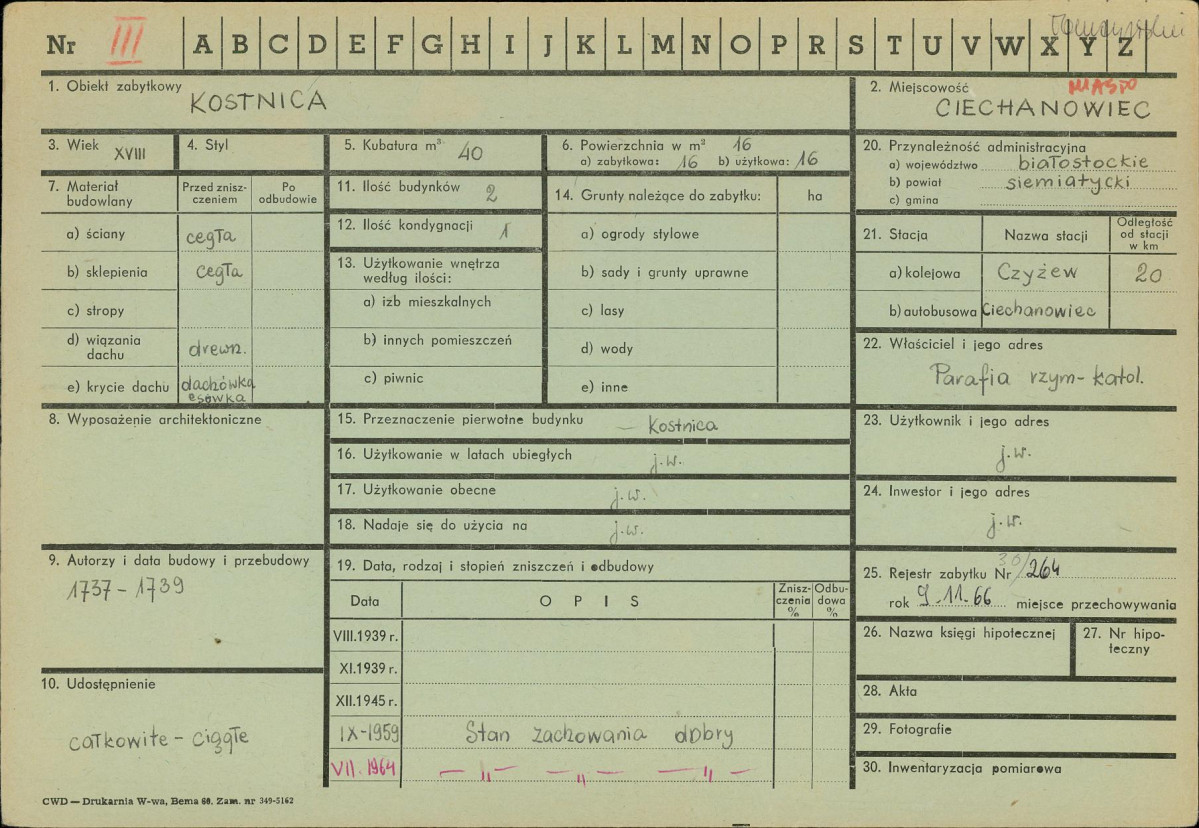 Nr III A B C D E F G H I J K L M N O P R S T U V W X Y Z
1. Obiekt zabytkowy
KOSTNICA
2. Miejscowość MIASTO
CIECHANOWIEC
3. Wiek XVIII
4. Styl
5. Kubatura m³ 40
6. Powierzchnia w m² 16
a) zabytkowa: 16 b) użytkowa: 16
20. Przynależność administracyjna
a) województwo białostockie
b) powiat siemiatycki
c) gmina
7. Materiał budowlany
Przed znisz-
czeniem
Po
odbudowie
a) ściany cegła
b) sklepienia cegła
c) stropy
d) wiązania
dachu drewn.
e) krycie dachu dachówka
esówka
11. Ilość budynków 2
12. Ilość kondygnacji 1
13. Użytkowanie wnętrza
według ilości:
a) izb mieszkalnych
b) innych pomieszczeń
c) piwnic
14. Grunty należące do zabytku: ha
a) ogrody stylowe
b) sady i grunty uprawne
c) lasy
d) wody
e) inne
21. Stacja Nazwa stacji
Odległość
od stacji
w km
a) kolejowa Czyżew 20
b) autobusowa Ciechanowiec
22. Właściciel i jego adres
Parafia rzym-katol.
8. Wyposażenie architektoniczne
15. Przeznaczenie pierwotne budynku — kostnica
16. Użytkowanie w latach ubiegłych j.w.
17. Użytkowanie obecne j.w.
18. Nadaje się do użycia na j.w.
23. Użytkownik i jego adres
j.w.
24. Inwestor i jego adres
j.w.
9. Autorzy i data budowy i przebudowy
1737-1739
19. Data, rodzaj i stopień zniszczeń i odbudowy
Data OPIS
Znisz-
czenia
%
Odbu-
dowa
%
VIII.1939 r.
XI.1939 r.
XII.1945 r.
IX-1959 Stan zachowania dobry
VII.1964 —"— —"— —"—
25. Rejestr zabytku Nr 264
rok 9.11.66 miejsce przechowywania
26. Nazwa księgi hipotecznej
27. Nr hipo-
teczny
28. Akta
29. Fotografie
30. Inwentaryzacja pomiarowa
10. Udostępnienie
całkowite - ciągłe
CWD — Drukarnia W-wa, Bema 60. Zam. nr 349-5162